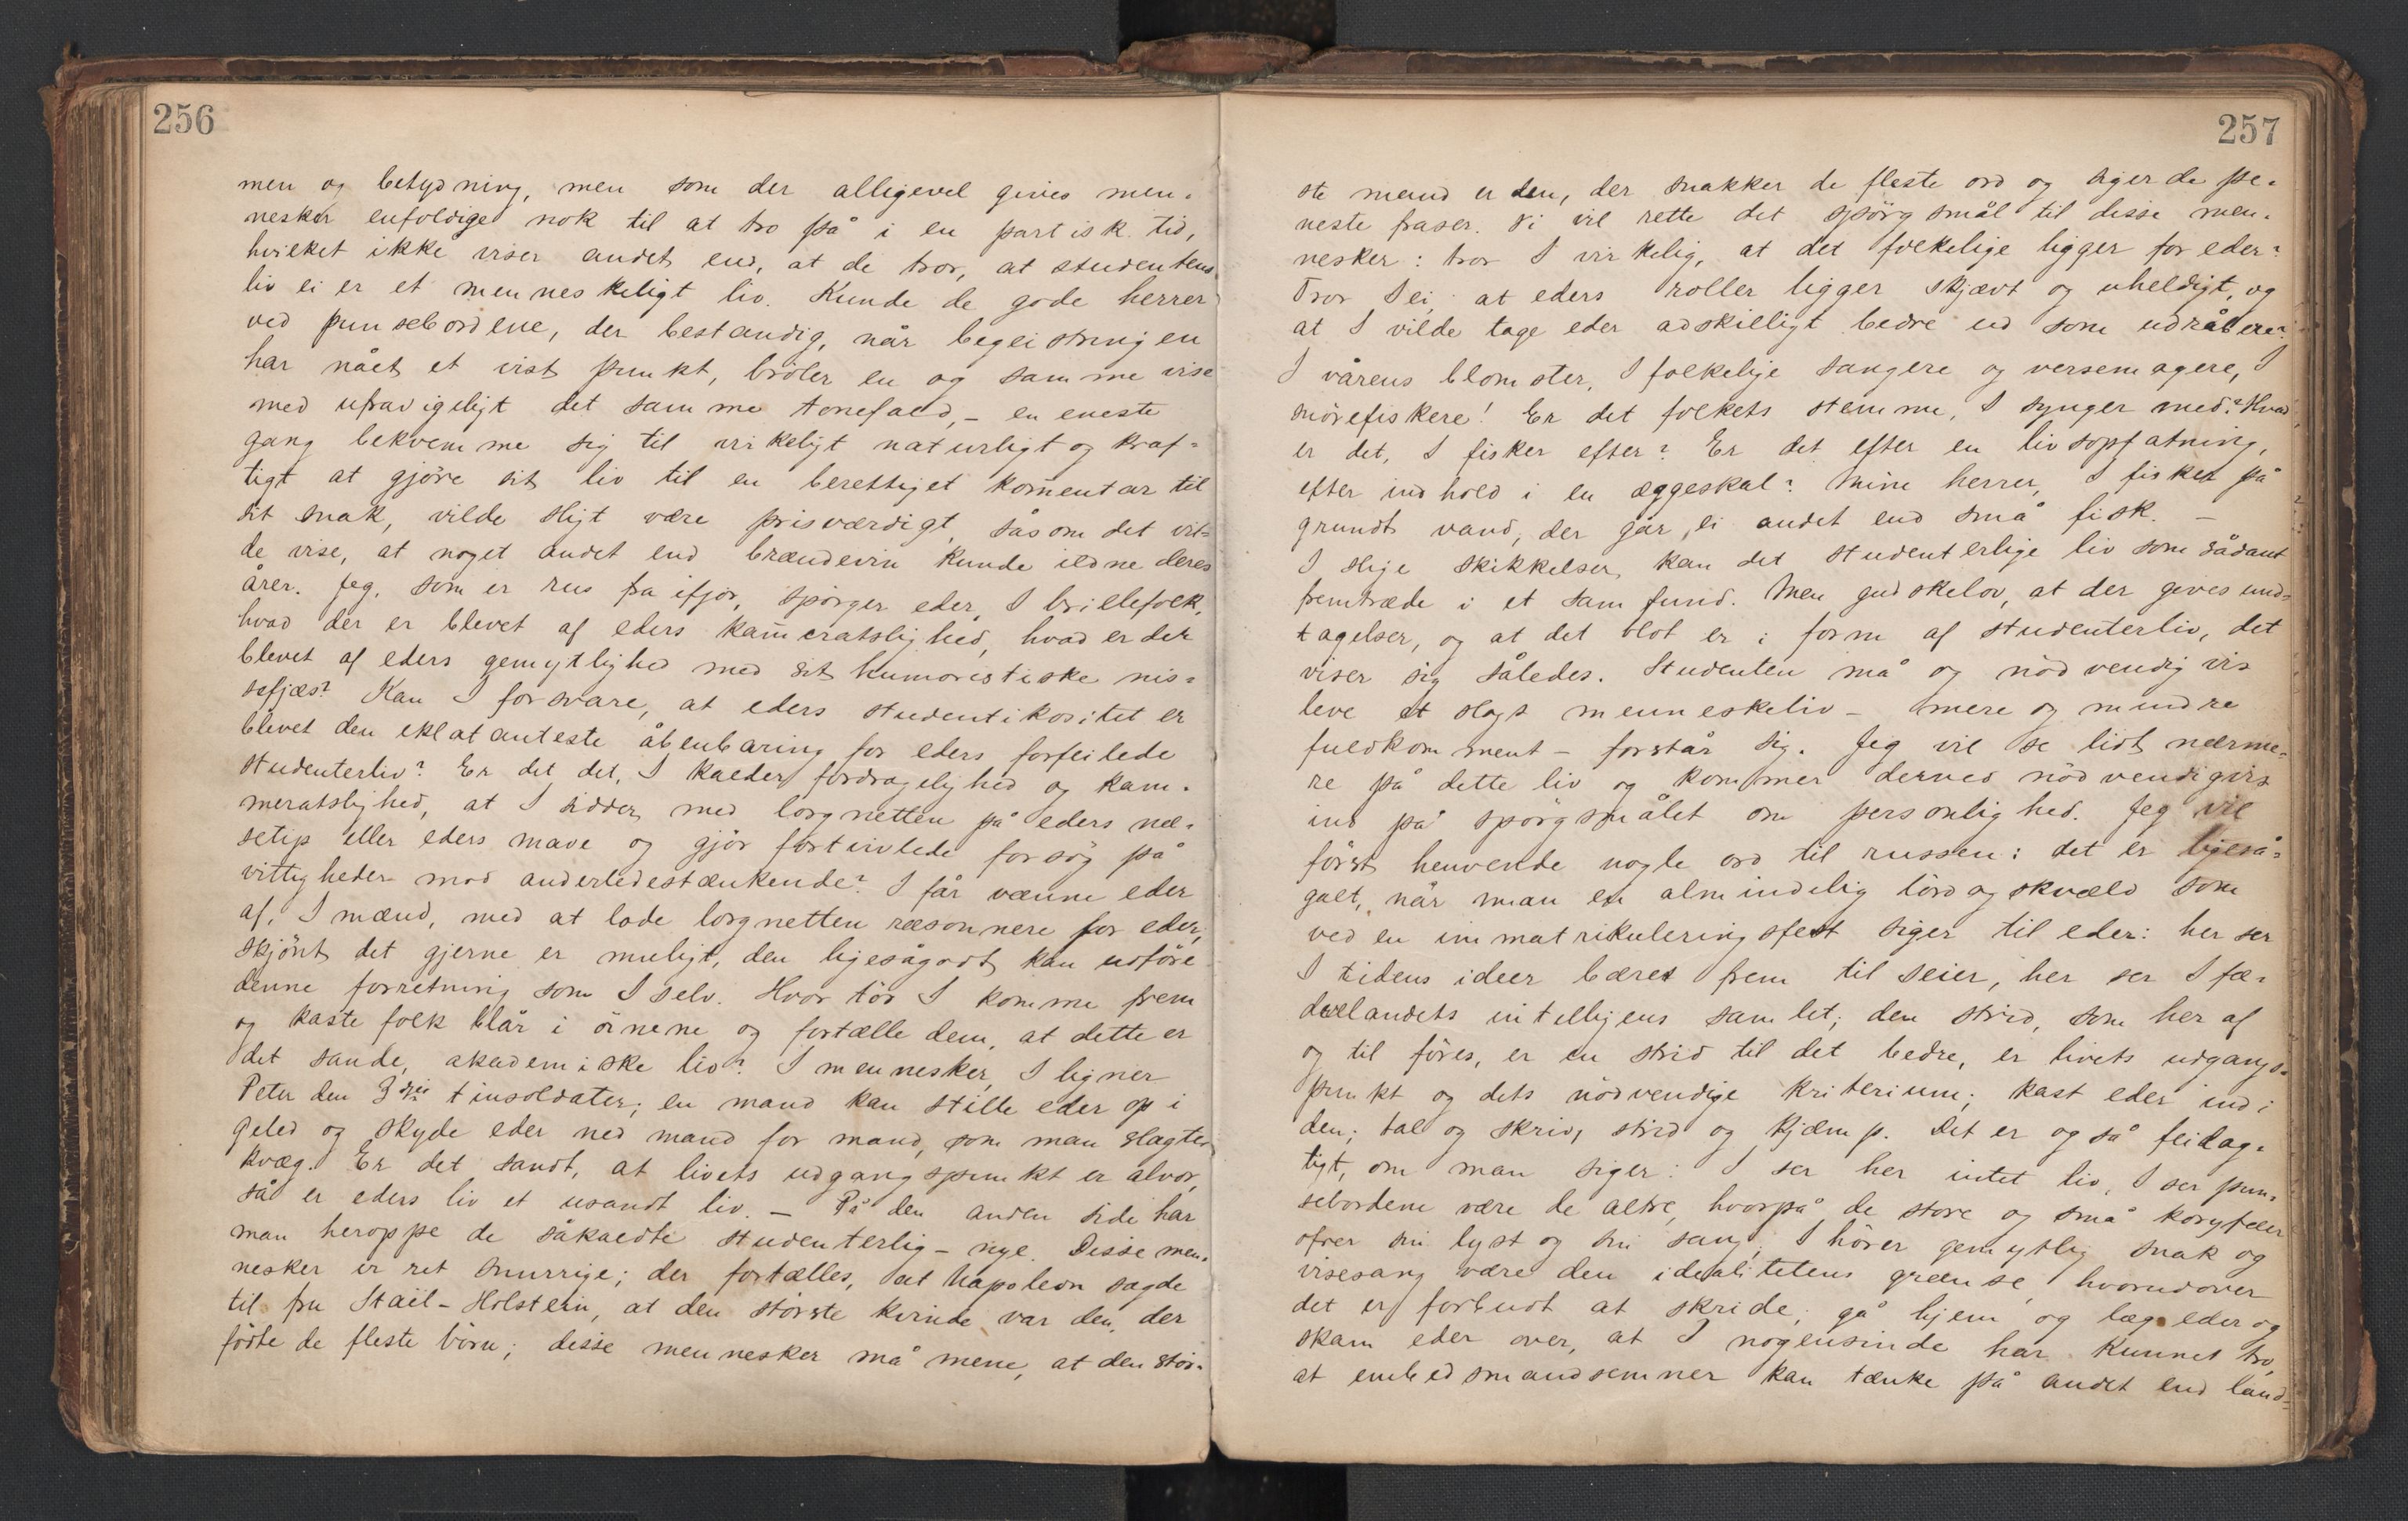 256
men og betydning, men som der alligevel gives men-
nesker enfoldige nok til at tro på i en partisk tid,
hvilket ikke viser andet end, at de tror, at studentens
liv ei er et menneskeligt liv. Kunde de gode herrer
ved punsebordene, der bestandig, når begeistringen
har nået et vist punkt, bröler en og samme vise
med ufravigeligt det samme tonefald, – en eneste
gang bekvemme sig til virkeligt naturligt og kraf-
tigt at gjöre sit liv til en berettiget komentar til
sit snak, vilde sligt være prisværdigt, såsom det vil-
de vise, at noget andet end brændevin kunde ildne deres
årer. Jeg, som er rus fra ifjor, spörger eder, I brillefolk,
hvad der er blevet af eders kameratslighed, hvad er der
blevet af eders gemytlighed med sit humoristiske nis-
sefjæs? Kan I forsvare, at eders studentikositet er
blevet den eklatanteste åbenbaring for eders forfeilede
studenterliv? Er det det, I kalder fordragelighed og kam-
meratslighed, at I sidder med lorgnetten på eders næ-
setip eller eders mave og gjör fortvivlede forsög på
vittigheder mod anderledestænkende? I får vænne eder
af, I mænd, med at lade lorgnetten ræsonnere for eder,
skjönt det gjerne er muligt, den ligesågodt kan udföre
denne forretning som I selv. Hvor tör I komme frem
og kaste folk blår i öinene og fortælle dem, at dette er
det sande, akademiske liv? I mennesker, I ligner
Peter den 3dies tinsoldater; en mand kan stille eder op i
geled og skyde eder ned mand for mand, som man slagter
kvæg. Er det sandt, at livets udgangspunkt er alvor,
så er eders liv et usandt liv. – På den anden side har
man heroppe de såkaldte studenterlig-nye. Disse men-
nesker er ret snurrige; der fortælles, at Napoleon sagde
til fru Staël-Holstein, at den störste kvinde var den, der
födte de fleste börn; disse mennesker må mene, at den stör-
257
ste mand er den, der snakker de fleste ord og siger de pe-
neste fraser. Vi vil rette det spörgsmål til disse men-
nesker: tror I virkelig, at det folkelige ligger for eder?
Tror I ei, at eders roller ligger skjævt og uheldigt, og
at I vilde tage eder adskilligt bedre ud som udråbere?
I vårens blomster, I folkelige sangere og versemagere, I
snörefiskere! Er det folkets stemme, I synger med? Hvad
er det, I fisker efter? Er det efter en livsopfatning,
efter indhold i en æggeskal? Mine herrer, I fisker på
grundt vand, der går ei andet end små fisk. –
I slige skikkelser kan det studenterlige liv som sådant
fremtræde i et samfund. Men gudskelov, at der gives und-
tagelser, og at det blot er i form af studenterliv, det
viser sig således. Studenten må og nödvendigvis
leve et slags menneskeliv – mere og mindre
fuldkomment – forstår sig. Jeg vil se lidt nærme-
re på dette liv og kommer derved nödvendigvis
ind på spörgsmålet om personlighed. Jeg vil
först henvende nogle ord til russen: det er ligeså-
galt, når man en almindelig lördagskvæld som
ved en immatrikuleringsfest siger til eder: her ser
I tidens ideer båret frem til seier, her ser I fæ-
drelandets intelligens samlet; den strid, som her af
og til föres, er en strid til det bedre, er livets udgangs-
punkt og dets nödvendige kriterium; kast eder ind i
den; tal og skriv, strid og kjæmp. Det er også feilag-
tigt, om man siger: I ser her intet liv, I ser pun-
sebordene være de altre, hvorpå de store og små koryfæer
ofrer sin lyst og sin sang; I hörer gemytlig snak og
visesang være den idealitetens grænse, hvorudover
det er forbudt at skride; gå hjem og læg eder og
skam eder over, at I nogensinde har kunnet tro,
at embedsmandsemner kan tænke på andet end land-